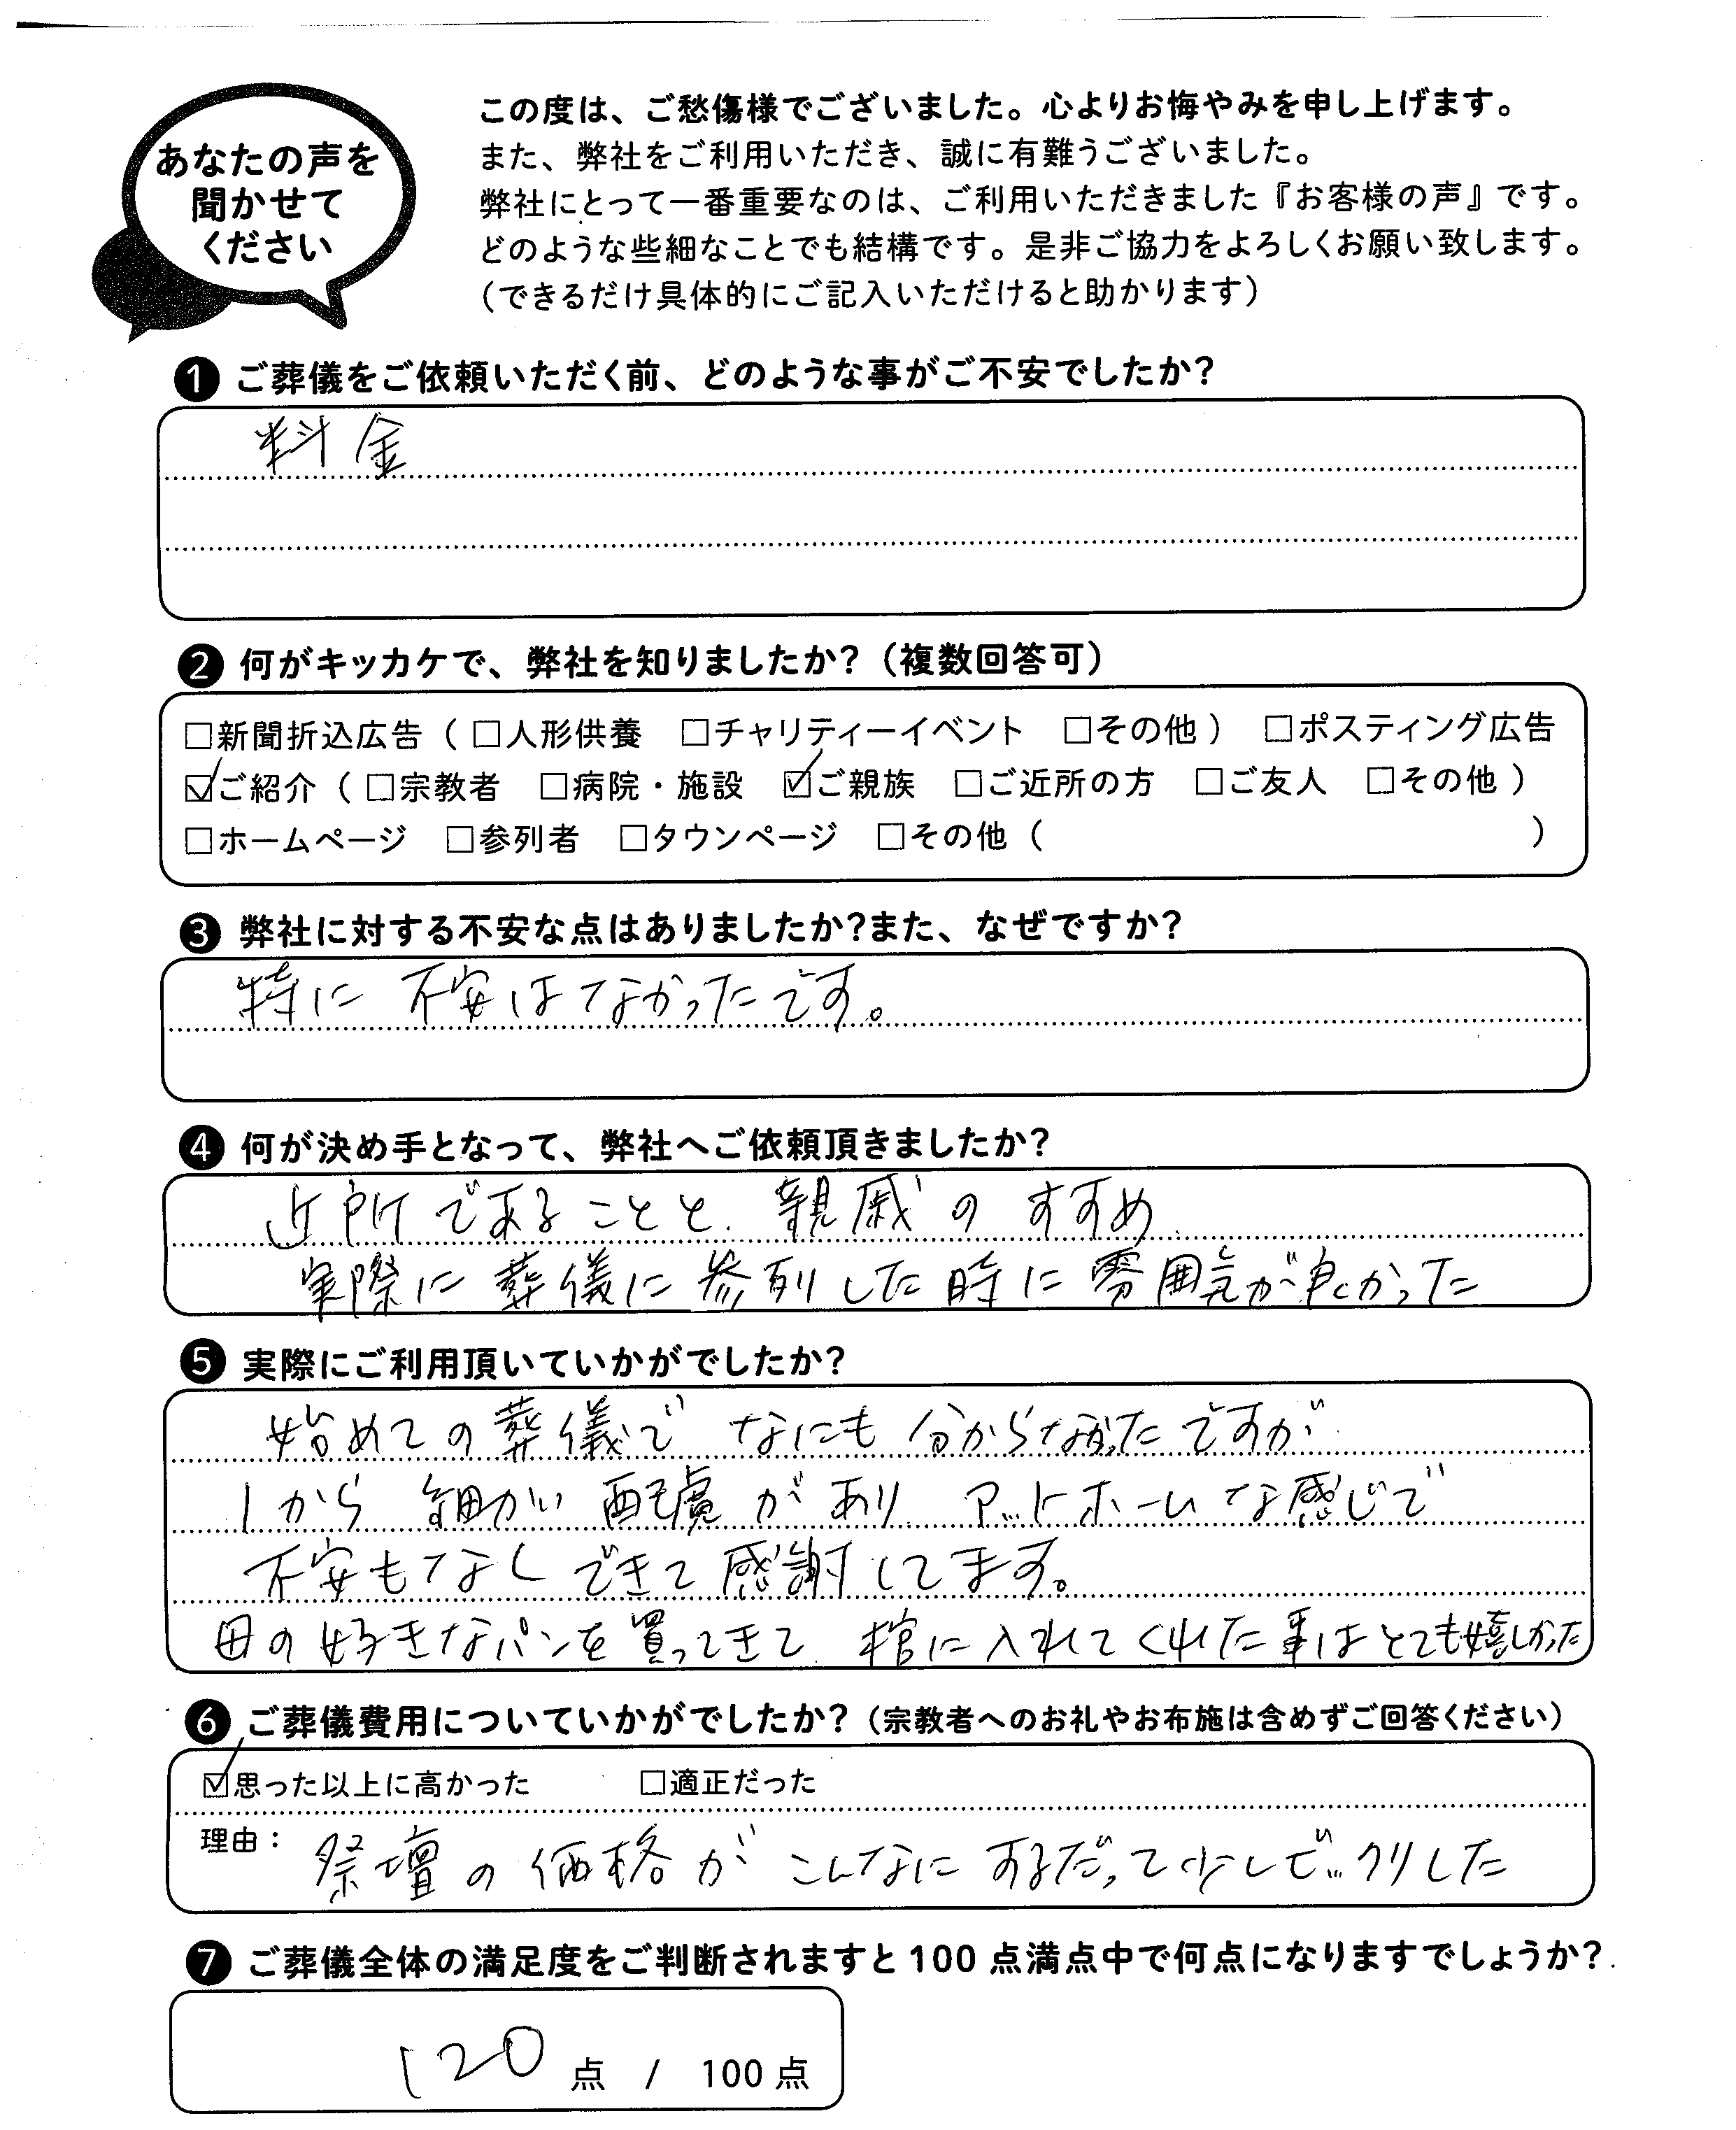 あなたの声を
聞かせて
ください
この度は、ご愁傷様でございました。心よりお悔やみを申し上げます。
また、弊社をご利用いただき、誠に有難うございました。
弊社にとって一番重要なのは、ご利用いただきました『お客様の声』です。
どのような些細なことでも結構です。是非ご協力をよろしくお願い致します。
（できるだけ具体的にご記入いただけると助かります）
❶ ご葬儀をご依頼いただく前、どのような事がご不安でしたか？
料金
❷ 何がキッカケで、弊社を知りましたか？（複数回答可）
□新聞折込広告（ □人形供養 □チャリティーイベント □その他 ） □ポスティング広告
☑ご紹介（ □宗教者 □病院・施設 ☑ご親族 □ご近所の方 □ご友人 □その他 ）
□ホームページ □参列者 □タウンページ □その他（ ）
❸ 弊社に対する不安な点はありましたか？また、なぜですか？
特に 不安はなかったです。
❹ 何が決め手となって、弊社へご依頼頂きましたか？
近所であることと、親戚のすすめ、
実際に葬儀に参列した時に雰囲気が良かった
❺ 実際にご利用頂いていかがでしたか？
始めての葬儀で なにも分からなかったですが
1から 細かい配慮があり、アットホームな感じで
不安もなくできて感謝してます。
母の好きなパンを買ってきて、棺に入れてくれた事はとても嬉しかった
❻ ご葬儀費用についていかがでしたか？（宗教者へのお礼やお布施は含めずご回答ください）
☑思った以上に高かった □適正だった
理由： 祭壇の価格が こんなにするだって少しビックリした
❼ ご葬儀全体の満足度をご判断されますと100点満点中で何点になりますでしょうか？
120 点 / 100 点